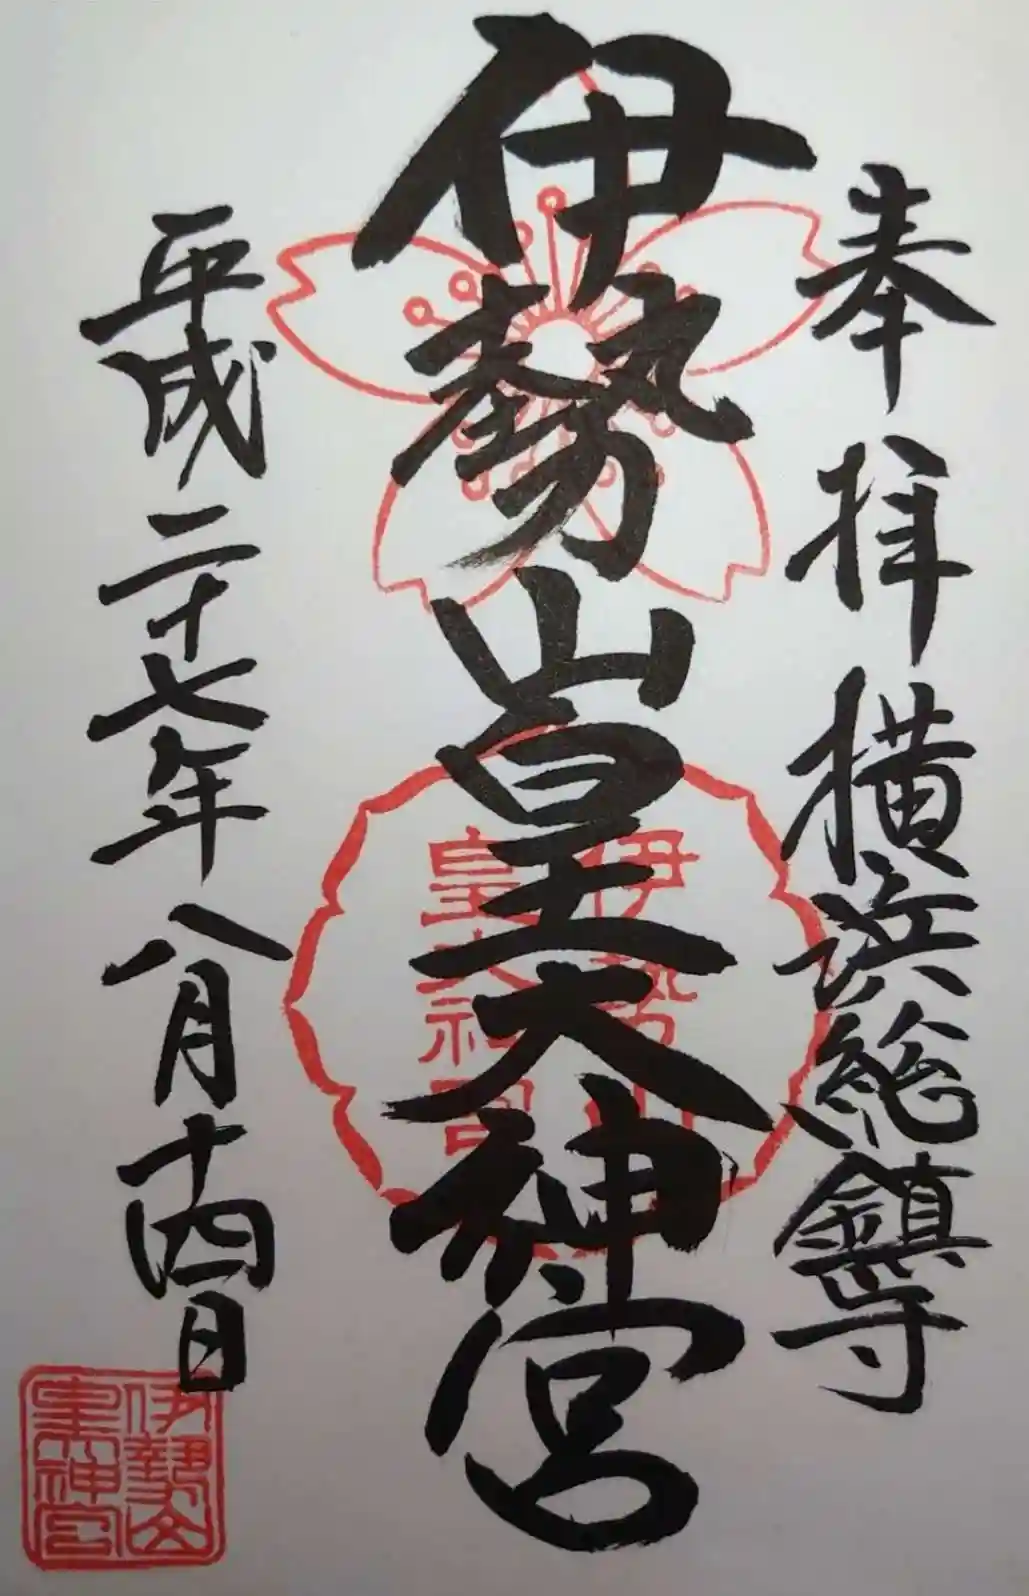 奉拝 横浜総鎮守
伊勢山皇大神宮
平成二十七年八月十四日
伊勢山
皇大神宮
伊勢山
皇大神宮